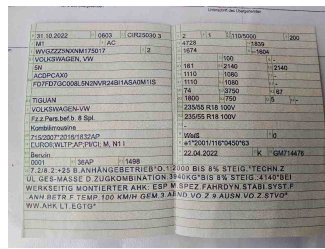 31.10.2022 0603 CIR25030 3
M1 AC
WVGZZZ5NXNM175017 2
VOLKSWAGEN, VW
5N
ACDPCAX0
TIGUAN
VOLKSWAGEN-VW
Fz.z.Pers.bef.b. 8 Spl.
Kombilimousine
715/2007*2018/1832AP
EURO6;WLTP;AP;PI/CI; M, N1 I
Benzin
0001 36AP 1498
2 1 110/5000 200
4728 1839
1674
100 -
161 2140 2140
1110 1080
1110 1080
74 3750 67
1800 750 5 -
235/55 R18 100V
235/55 R18 100V
Weiß 0
e1*2001/116*0450*63
22.04.2022 K GM714476
7.2/8.2:+25 B.ANHÄNGEBETRIEB*O.1:2000 BIS 8% STEIG.*TECHN.Z
UL GES-MASSE D.ZUGKOMBINATION:3940KG*BIS 8% STEIG.:4140*BEI
WERKSEITIG MONTIERTER AHK: ESP M.SPEZ.FAHRDYN.STABI.SYST.F
.ANH.BETR.F.TEMP.100 KM/H GEM.3.AEND.VO.Z.9.AUSN.VO.Z.STVO*
WW.AHK LT.EGTG*